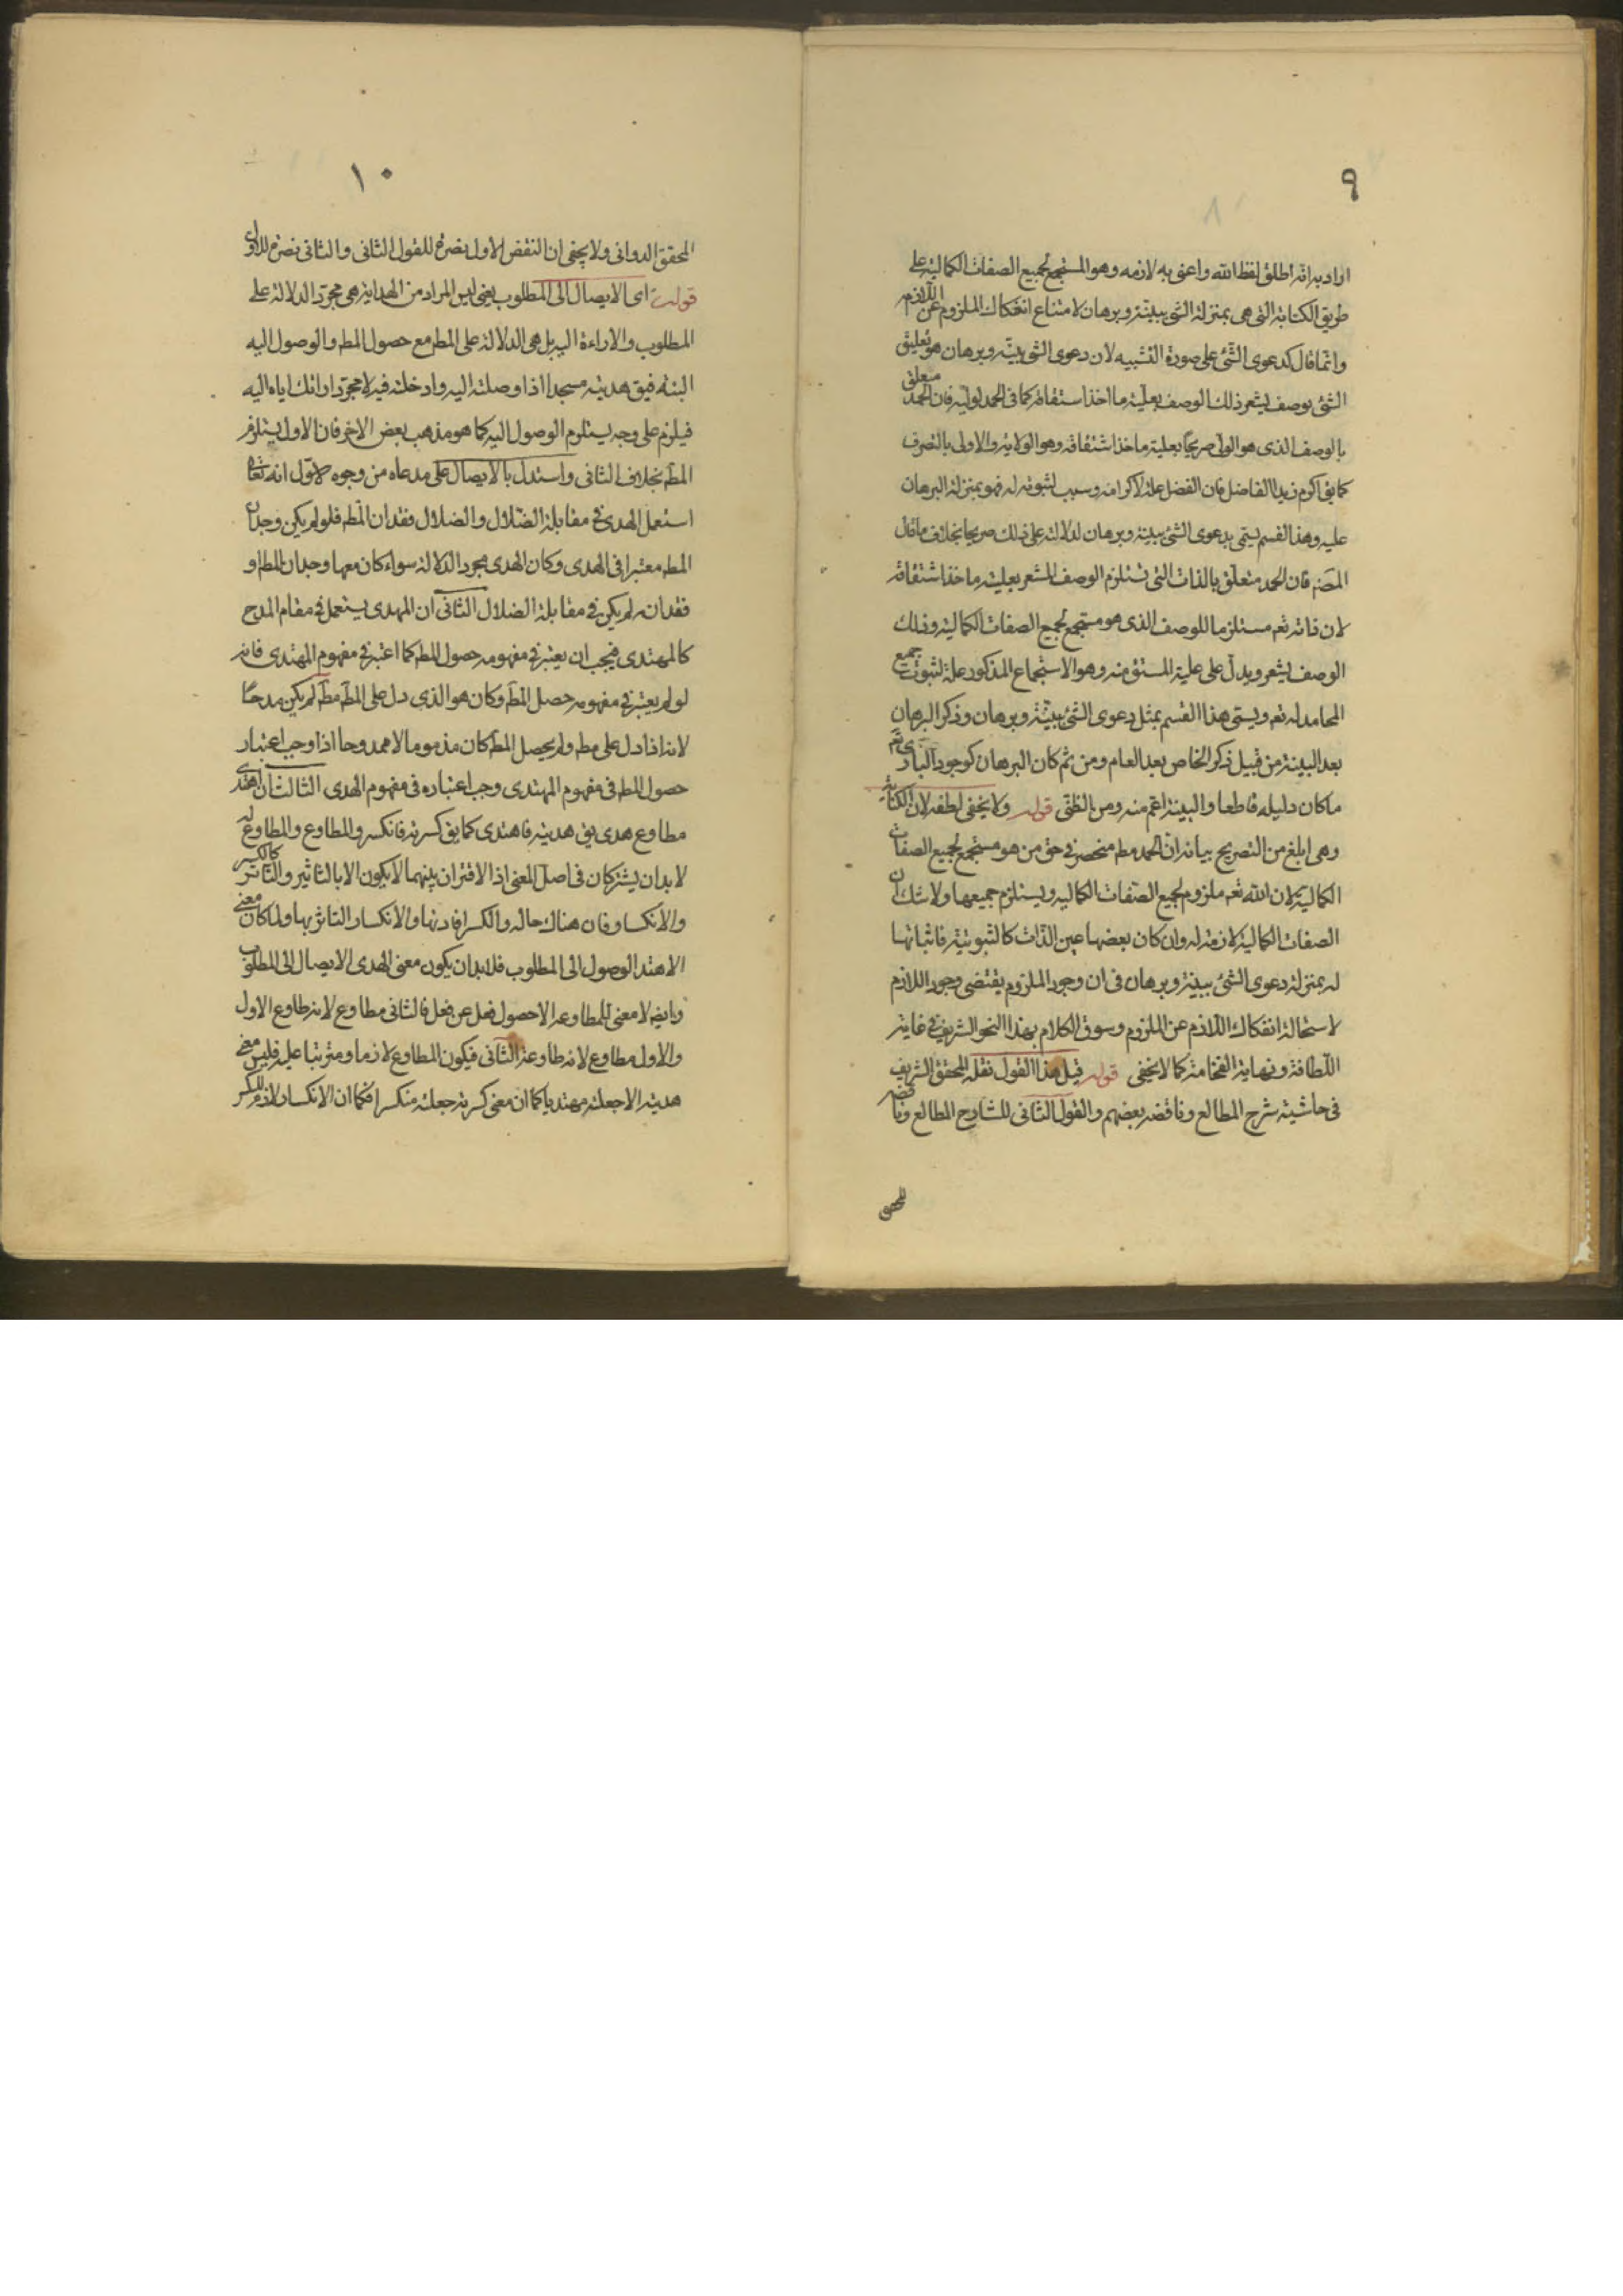 ٩
اراد به انه اطلق لفظ الله واعنى به لازمه وهو المستجمع لجميع الصفات الكمالية على
طريق الكناية التى هى بمنزلة الشئ ببينة وبرهان لامتناع انفكاك الملزوم عن اللازم
وانما قال كدعوى الشئ على صورة التشبيه لان دعوى الشئ ببينة وبرهان هو تعليق
الشئ بوصف يشعر ذلك الوصف بعلية ما اخذ استقاقه كما فى الحمد لوليه فان الحمد متعلق
بالوصف الذى هو الولى صريحا بعلية ماخذ اشتقاقه وهو الولاية والاولى بالتصرف
كما يق اكرم زيدا الفاضل فان الفضل علة لاكرامه وسبب لثبوته له فهو بمنزلة البرهان
عليه وهذا القسم يسمى بدعوى الشئ ببينة وبرهان لدلالته على ذلك صريحا بخلاف ما قال
المصنه فان الحمد متعلق بالذات التى تستلزم الوصف المشعر بعلية ماخذ اشتقاقه
لان ذاته تعه مستلزما للوصف الذى هو مستجمع لجميع الصفات الكمالية وذلك
الوصف يشعر ويدل على علية المستق منه وهو الاستجماع المذكور علة لثبوت جميع
المحامد له تعه ويسمى هذا القسم بمثل دعوى الشئ ببينة وبرهان وذكر البرهان
بعد البينة من قبيل ذكر الخاص بعد العام ومن ثم كان البرهان كوجود البارى تعه
ما كان دليله قاطعا والبينة اعم منه ومن الظنى قوله ولا يخفى لطفه لان الكناية
وهى ابلغ من التصريح بيانه ان الحمد مطه منحصر فى حق من هو مستجمع لجميع الصفات
الكمالية لان الله تعه ملزوم لجميع الصفات الكماليه ويستلزم جميعها ولا شك ان
الصفات الكمالية لازمة له وان كان بعضها عين الذات كالثبوتية فاثباتها
له بمنزلة دعوى الشئ ببينة وبرهان فى ان وجود الملزوم يقتضى وجود اللازم
لاستحالة انفكاك اللازم عن الملزوم وسوق الكلام بهذا النحو الشريف فى غاية
اللطافة ونهاية الفخامة كما لا يخفى قوله قيل هذا القول نقله المحقق الشريف
فى حاشية شرح المطالع وناقضه بعضهم والقول الثانى للشارح المطالع وناقضه
المحقق
١٠
المحقق الدوانى ولا يخفى ان النقض الاول نصرة للقول الثانى والثانى نصرة للاول
قوله اى الايصال الى المطلوب يعنى ليس المراد من الهداية هى مجرد الدلالة على
المطلوب والاراءة اليه بل هى الدلالة على المطه مع حصول المطه والوصول اليه
البته فيق هديته مسجدا اذا وصلته اليه وادخلته فيه لا مجرد ارائتك اياه اليه
فيلزم على وجه يستلزم الوصول اليه كما هو مذهب بعض الاخر فان الاول يستلزم
المطه بخلاف الثانى واستدل بالايصال على مدعاه من وجوه الاول انه تعالى
استعمل الهدى فى مقابلة الضلال والضلال فقدان المطه فلو لم يكن وجدان
المطه معتبرا فى الهدى وكان الهدى مجرد الدلالة سواء كان معها وجدان المطه او
فقدانه لم يكن فى مقابلة الضلال الثانى ان المهدى يستعمل فى مقام المدح
كالمهتدى فيجب ان يعتبر فى مفهومه حصول المطه كما اعتبر فى مفهوم المهتدى فانه
لو لم يعتبر فى مفهومه حصل المطه وكان هو الذى دل على المطه مطه لم يكن مدحا
لانه اذا دل على مطه ولم يحصل المطه كان مذموما لا ممدوحا اذا وجب اعتبار
حصول المطه فى مفهوم المهتدى وجب اعتباره فى مفهوم الهدى الثالث ان اهتدى
مطاوع هدى يق هديته فاهتدى كما يق كسرته فانكسر والمطاوع والمطاوع له
لابد ان يشتركان فى اصل المعنى اذ الاقتران بينهما لا يكون الا بالتاثير والتاثر كالكسر
والانكسار فان هناك حالة والكسر افادتها والانكسار التاثر بها ولما كان معنى
الاهتدا الوصول الى المطلوب فلابد ان يكون معنى الهدى الايصال الى المطلوب
وايضه لا معنى للمطاوعه الا حصول فعل عن فعل فالثانى مطاوع لانه طاوع الاول
والاول مطاوع لانه طاوعة الثانى فيكون المطاوع لازما ومترتبا عليه فليس معنى
هديته الا جعلته مهتديا كما ان معنى كسرته جعلته منكسرا فكما ان الانكسار لازم للكسر